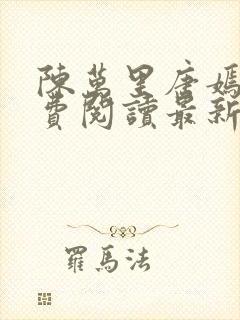 陳萬里唐嫣
費閱讀最新
羅馬法